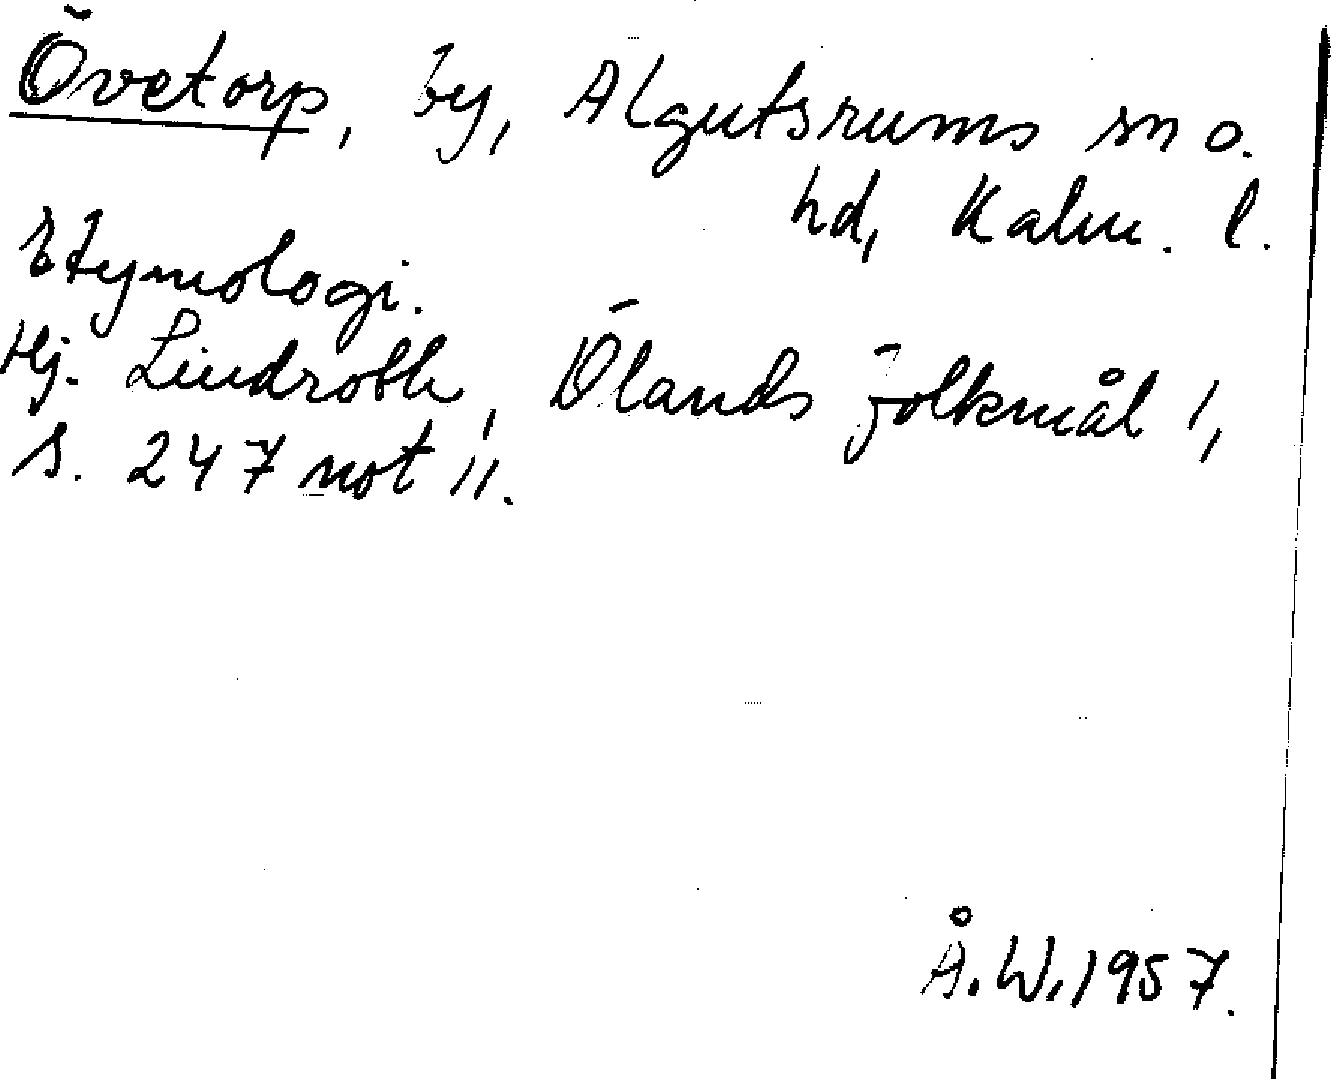 Övetorp, by, Algutsrums sn o.
hd, Kalm. l.
Etymologi.
Hj. Lindroth, Ölands folkmål I,
s. 247 not 11.
Å.W. 1957.